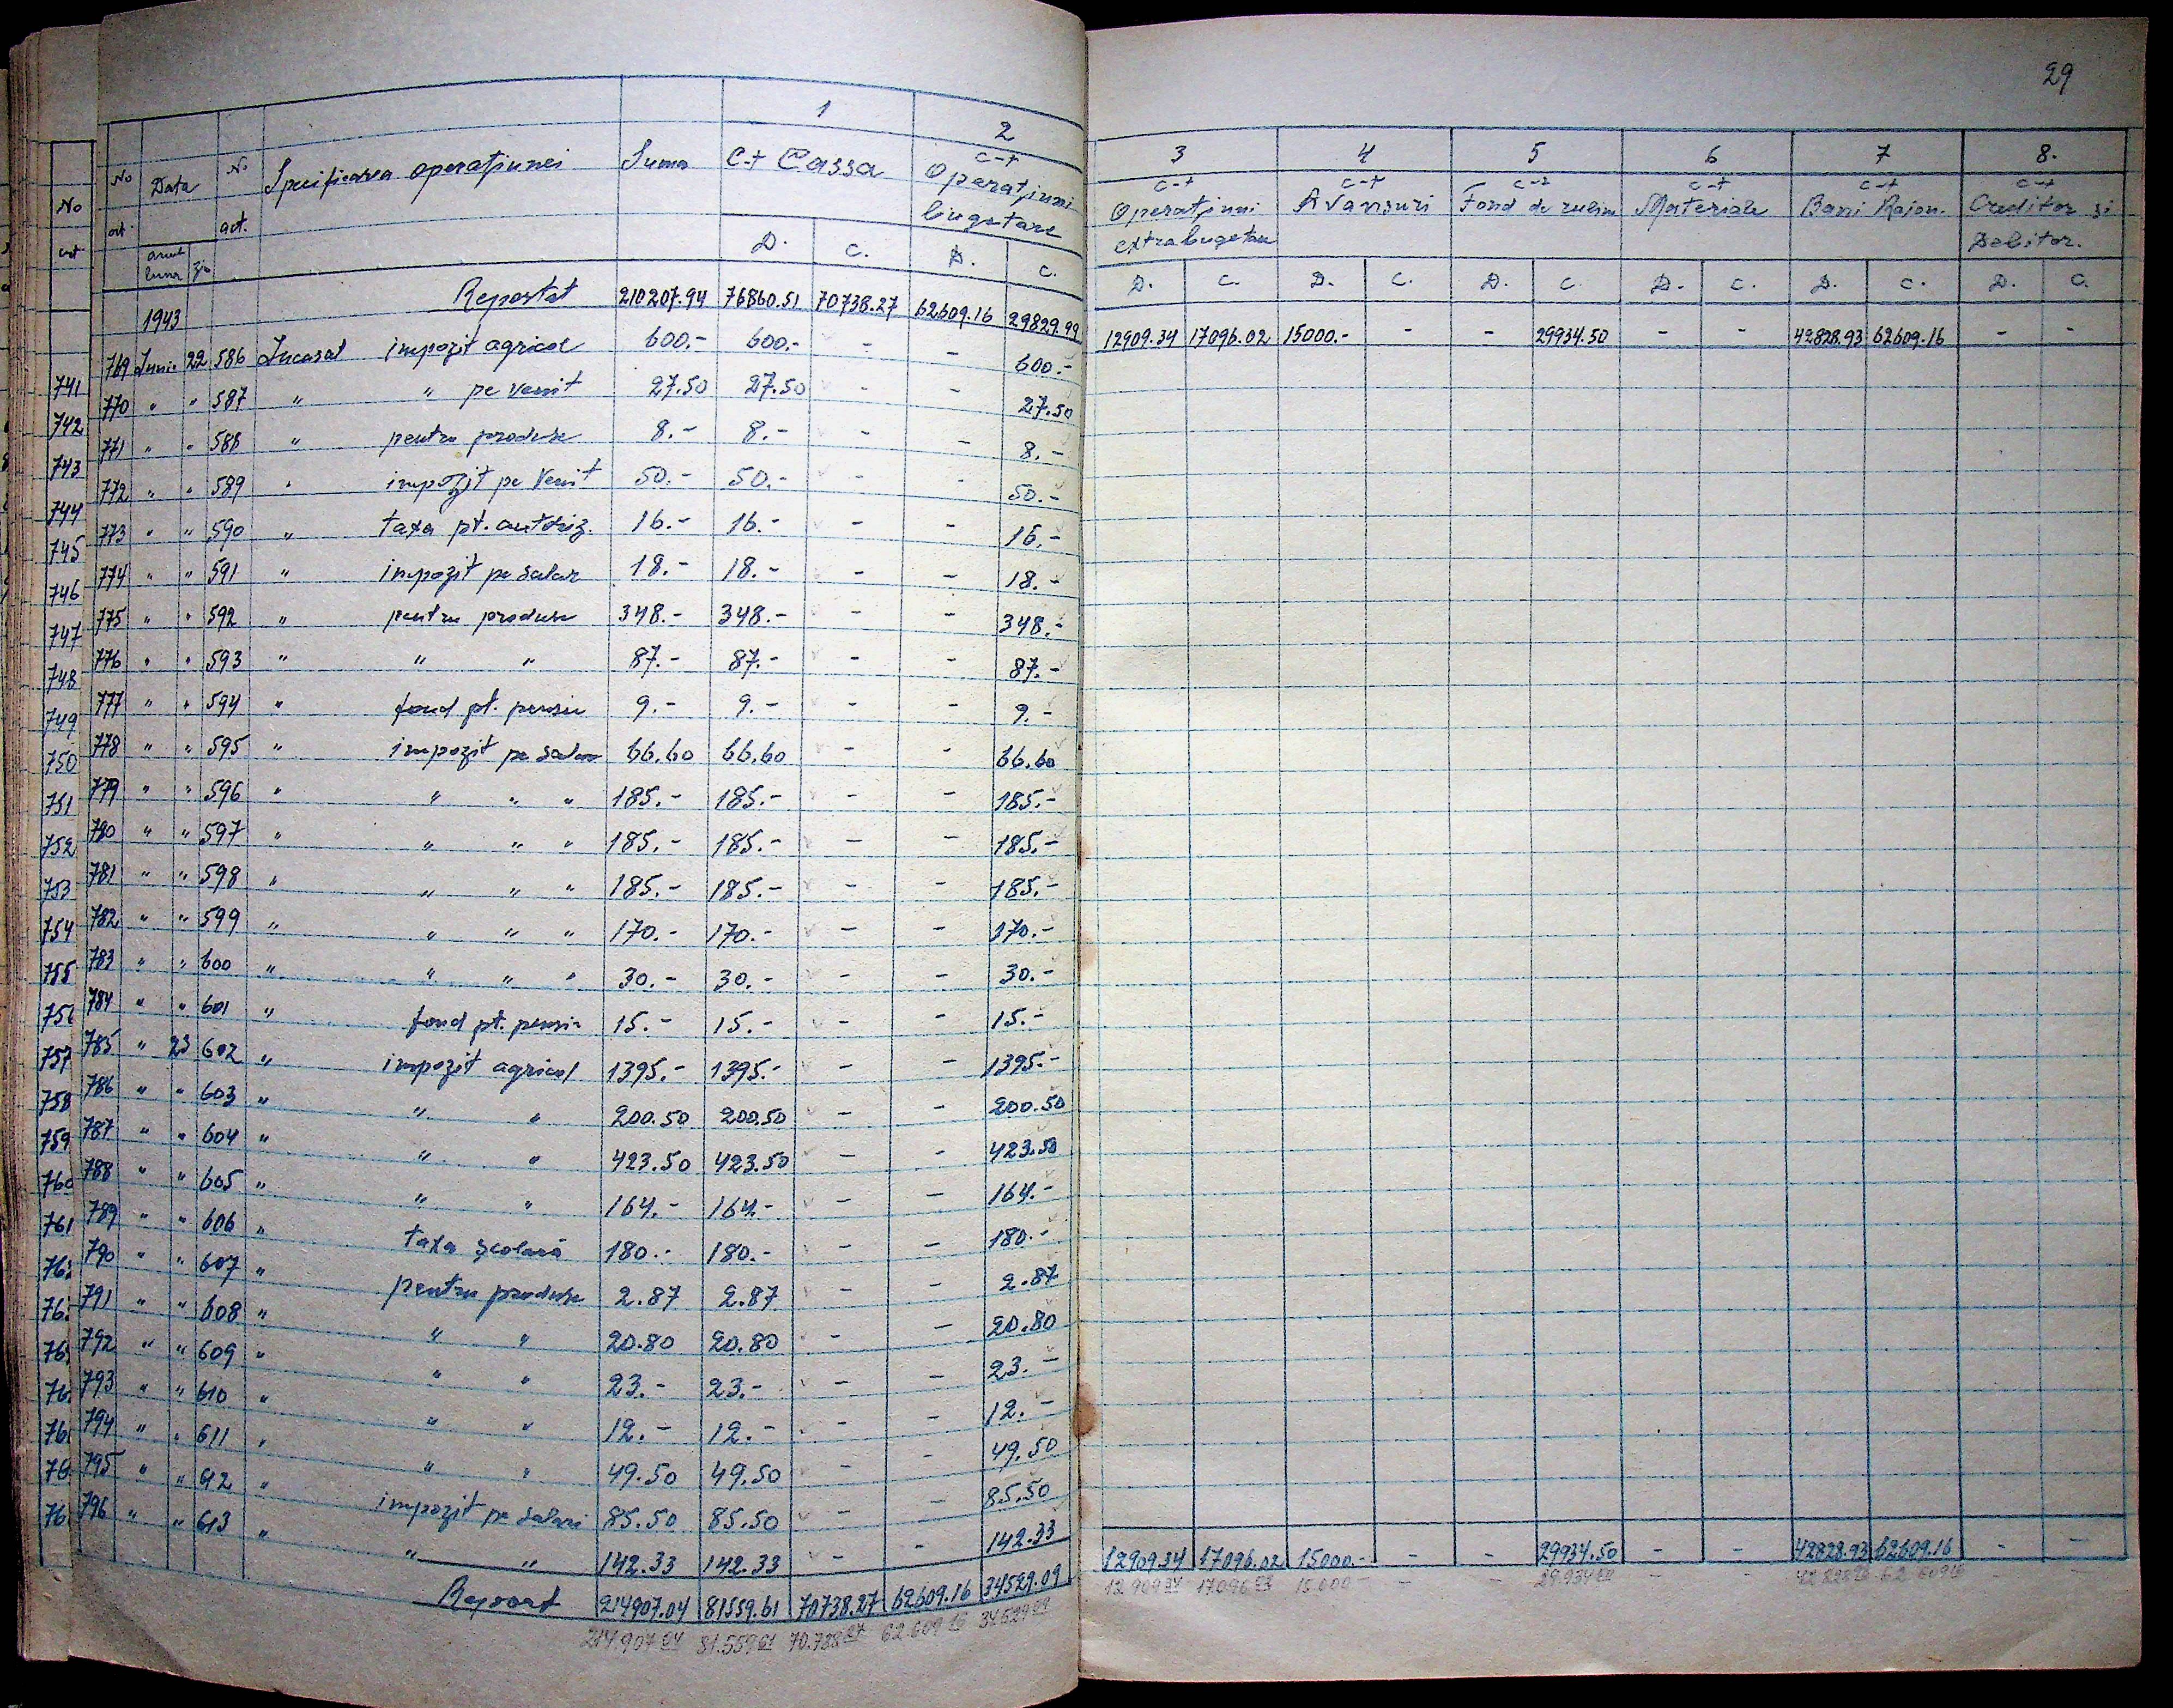 29
1 2 3 4 5 6 7 8.
No No Data No Specificarea operațiunei Suma C-t Cassa C-t Operațiuni bugetare C-t Operațiuni extrabugetare C-t Avansuri C-t Fond de rulm C-t Materiale C-t Bani Raion. C-t Creditor și Debitor.
crt ort. anul luna zi act. D. C. D. C. D. C. D. C. D. C. D. C. D. C. D. C.
1943 Reportat 210207.94 76860.51 70738.27 62609.16 29829.99 12909.34 17096.02 15000.- - - 29934.50 - - 42828.93 62609.16 - -
741 769 Iunie 22 586 Incasat impozit agricol 600.- 600.- - - 600.-
742 770 " " 587 " " pe venit 27.50 27.50 - - 27.50
743 771 " " 588 " pentru produse 8.- 8.- - - 8.-
744 772 " " 589 " impozit pe Venit 50.- 50.- - - 50.-
745 773 " " 590 " taxa pt. autoriz. 16.- 16.- - - 16.-
746 774 " " 591 " impozit pe salar 18.- 18.- - - 18.-
747 775 " " 592 " pentru produse 348.- 348.- - - 348.-
748 776 " " 593 " " " 87.- 87.- - - 87.-
749 777 " " 594 " fond pt. pensii 9.- 9.- - - 9.-
750 778 " " 595 " impozit pe salar 66.60 66.60 - - 66.60
751 779 " " 596 " " " " 185.- 185.- - - 185.-
752 780 " " 597 " " " " 185.- 185.- - - 185.-
753 781 " " 598 " " " " 185.- 185.- - - 185.-
754 782 " " 599 " " " " 170.- 170.- - - 170.-
755 783 " " 600 " " " " 30.- 30.- - - 30.-
756 784 " " 601 " fond pt. pensii 15.- 15.- - - 15.-
757 785 " 23 602 " impozit agricol 1395.- 1395.- - - 1395.-
758 786 " " 603 " " " 200.50 200.50 - - 200.50
759 787 " " 604 " " " 423.50 423.50 - - 423.50
760 788 " " 605 " " " 164.- 164.- - - 164.-
761 789 " " 606 " taxa școlară 180.- 180.- - - 180.-
76 790 " " 607 " pentru produse 2.87 2.87 - - 2.87
76 791 " " 608 " " " 20.80 20.80 - - 20.80
76 792 " " 609 " " " 23.- 23.- - - 23.-
76 793 " " 610 " " " 12.- 12.- - - 12.-
76 794 " " 611 " " " 49.50 49.50 - - 49.50
76 795 " " 612 " impozit pe salarii 85.50 85.50 - - 85.50
76 796 " " 613 " " " 142.33 142.33 - - 142.33
Report 214907.04 81559.61 70738.27 62609.16 34529.09 12909.34 17096.02 15000.- - - 29934.50 - - 42828.93 62609.16 - -
214.907 04 81.559 61 70.738 27 62.609 16 34529 09 12.909 34 17.096 02 15.000 - - - 29.934 50 - - 42.828 93 62.609 16 - -